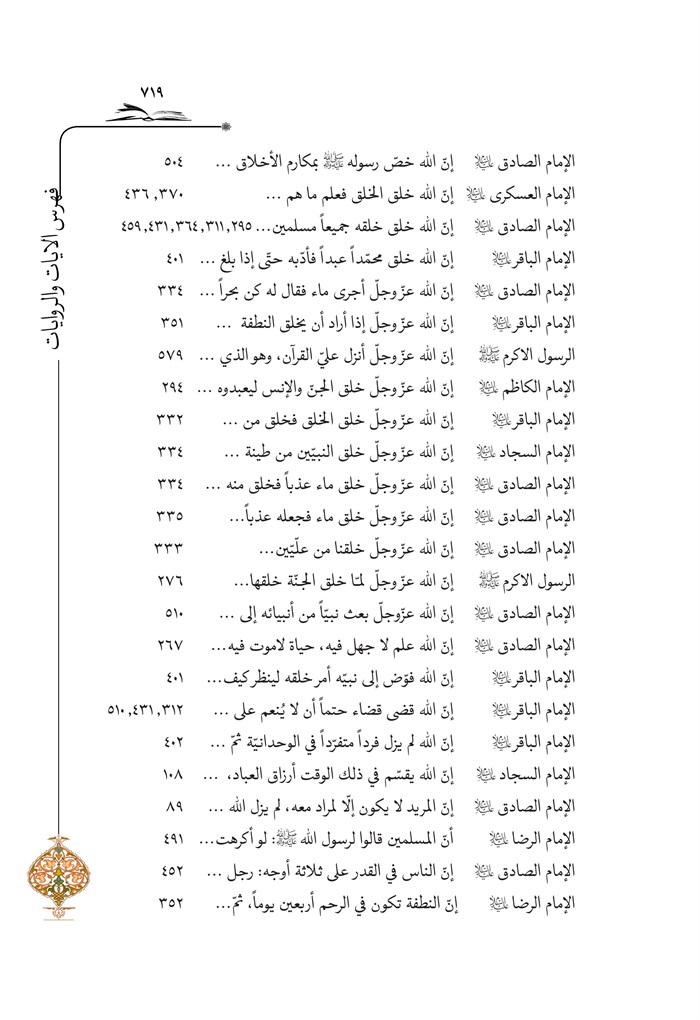 ٧١٩
فهرس الآيات والروايات
الإمام الصادق ﵇ إنّ الله خصّ رسوله ﷺ بمكارم الأخلاق ... ٥٠٤
الإمام العسكرى ﵇ إنّ الله خلق الخلق فعلم ما هم ... ٣٧٠, ٤٣٦
الإمام الصادق ﵇ إنّ الله خلق خلقه جميعاً مسلمين... ٢٩٥, ٣١١, ٣٦٤, ٤٣١, ٤٥٩
الإمام الباقر ﵇ إنّ الله خلق محمّداً عبداً فأدّبه حتّى إذا بلغ ... ٤٠١
الإمام الصادق ﵇ إنّ الله عزّ وجلّ أجرى ماء فقال له كن بحراً ... ٣٣٤
الإمام الباقر ﵇ إنّ الله عزّ وجلّ إذا أراد أن يخلق النطفة ... ٣٥١
الرسول الاكرم ﷺ إنّ الله عزّ وجلّ أنزل عليّ القرآن، وهو الذي ... ٥٧٩
الإمام الكاظم ﵇ إنّ الله عزّ وجلّ خلق الجنّ والإنس ليعبدوه ... ٢٩٤
الإمام الباقر ﵇ إنّ الله عزّ وجلّ خلق الخلق فخلق من ... ٣٣٢
الإمام السجاد ﵇ إنّ الله عزّ وجلّ خلق النبيّين من طينة ... ٣٣٤
الإمام الصادق ﵇ إنّ الله عزّ وجلّ خلق ماء عذباً فخلق منه ... ٣٣٤
الإمام الصادق ﵇ إنّ الله عزّ وجلّ خلق ماء فجعله عذباً... ٣٣٥
الإمام الصادق ﵇ إنّ الله عزّ وجلّ خلقنا من علّيّين... ٣٣٣
الرسول الاكرم ﷺ إنّ الله عزّ وجلّ لمّا خلق الجنّة خلقها... ٢٧٦
الإمام الصادق ﵇ إنّ الله عزّوجلّ بعث نبيّاً من أنبيائه إلى ... ٥١٠
الإمام الصادق ﵇ إنّ الله علم لا جهل فيه، حياة لاموت فيه... ٢٦٧
الإمام الباقر ﵇ إنّ الله فوّض إلى نبيّه أمر خلقه لينظر كيف... ٤٠١
الإمام الباقر ﵇ إنّ الله قضى قضاء حتماً أن لا يُنعم على ... ٣١٢, ٤٣١, ٥١٠
الإمام الباقر ﵇ إنّ الله لم يزل فرداً متفرّداً في الوحدانيّة ثمّ ... ٤٠٢
الإمام السجاد ﵇ إنّ الله يقسّم في ذلك الوقت أرزاق العباد، ... ١٠٨
الإمام الصادق ﵇ إنّ المريد لا يكون إلّا لمراد معه، لم يزل الله ... ٨٩
الإمام الرضا ﵇ أنّ المسلمين قالوا لرسول الله ﷺ: لو أكرهت... ٤٩١
الإمام الصادق ﵇ إنّ الناس في القدر على ثلاثة أوجه: رجل ... ٤٥٢
الإمام الرضا ﵇ إنّ النطفة تكون في الرحم أربعين يوماً، ثمّ... ٣٥٢